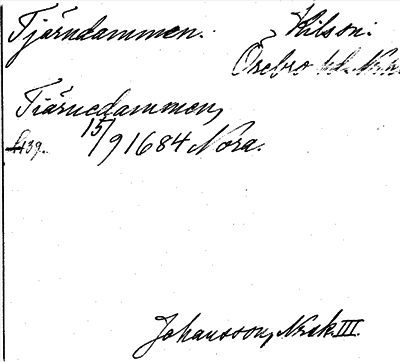 Tjärndammen. Kilson.
Örebro
Tiärnedammen,
139. 15/9 1684 Nora.
Johansson, Nsk. III.